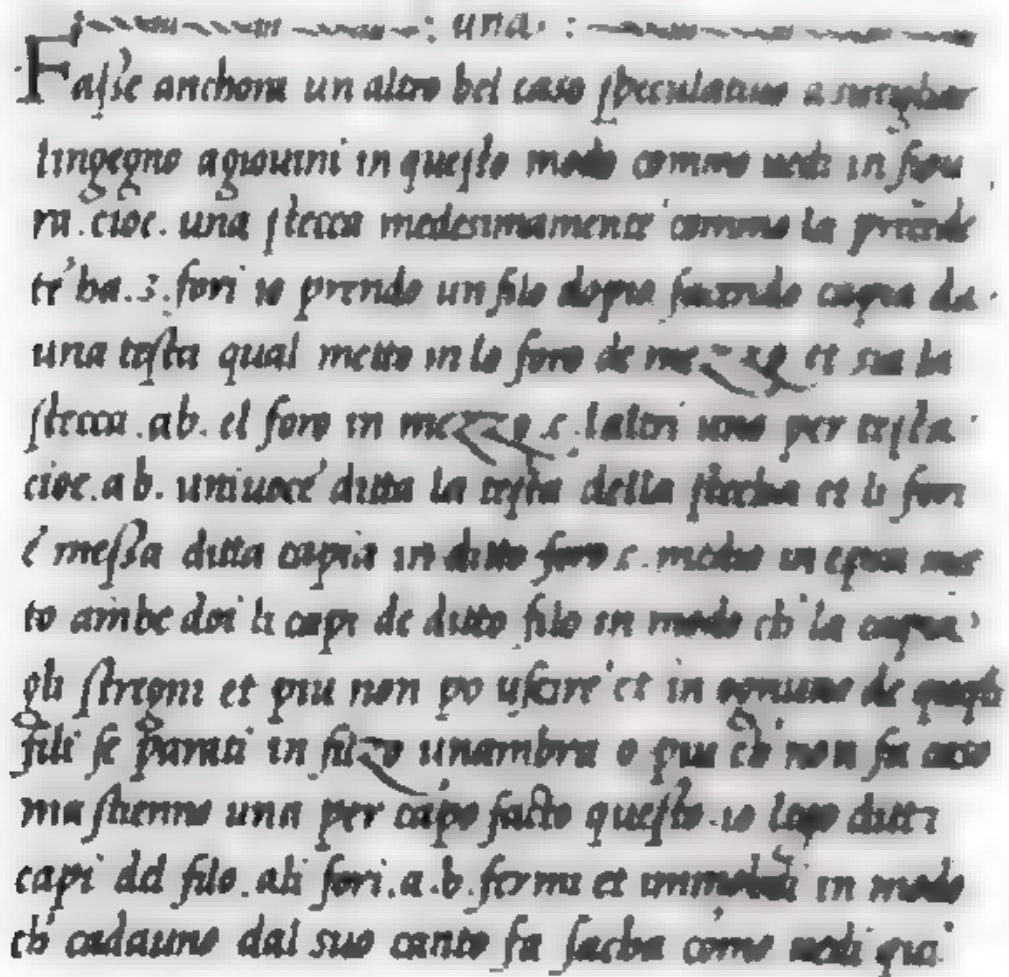 : una :
Fasse anchora un altro bel caso speculativo a
lingegno a giovini in questo modo commo vedi in figu
ra. cioe. una stecca medesimamente commo la
te ha .3. fori io prendo un filo dopio facendo capia da
una testa qual metto in lo foro de mezzo et sia la
stecca .ab. el foro in mezzo .c. laltri uno per testa
cioe .ab. ditta la testa della steccha et li fori
e messa ditta capia in ditto foro .c. modo in
to ambe doi li capi de ditto filo in modo ch' la capia
gli stregni et piu non po uscire et in ognuno de questi
fili se parati in filzo unambra o piu ch' non fa caso
ma stienno una per capo facto questo .io lego ditti
capi del filo .ali fori .a.b. fermi et immobili in modo
ch' cadauno dal suo canto fa sacha como vedi qui